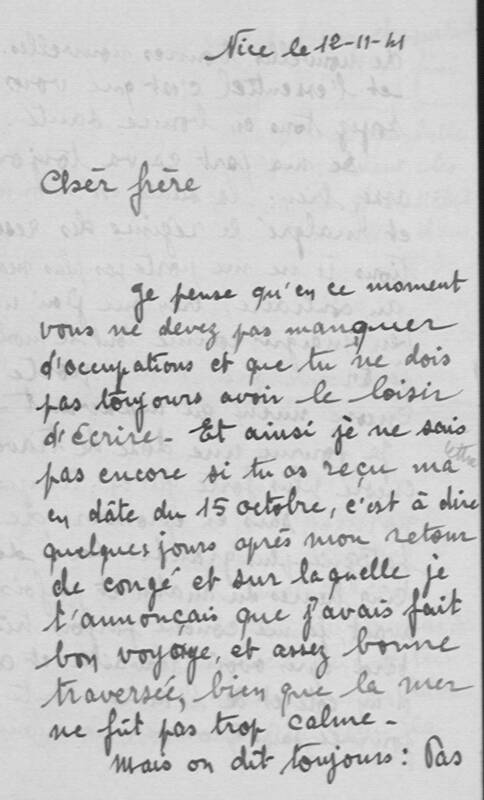 Nice le 12-11-41
Chèr frère
Je pense qu'en ce moment
vous ne devez pas manquer
d'occupations et que tu ne dois
pas toujours avoir le loisir
d'écrire - Et ainsi je ne sais
pas encore si tu as reçu ma lettre
en dâte du 15 octobre, c'est à dire
quelques jours après mon retour
de congé et sur laquelle je
t'annonçais que j'avais fait
bon voyage, et assez bonne
traversée, bien que la mer
ne fût pas trop calme -
Mais on dit toujours : Pas